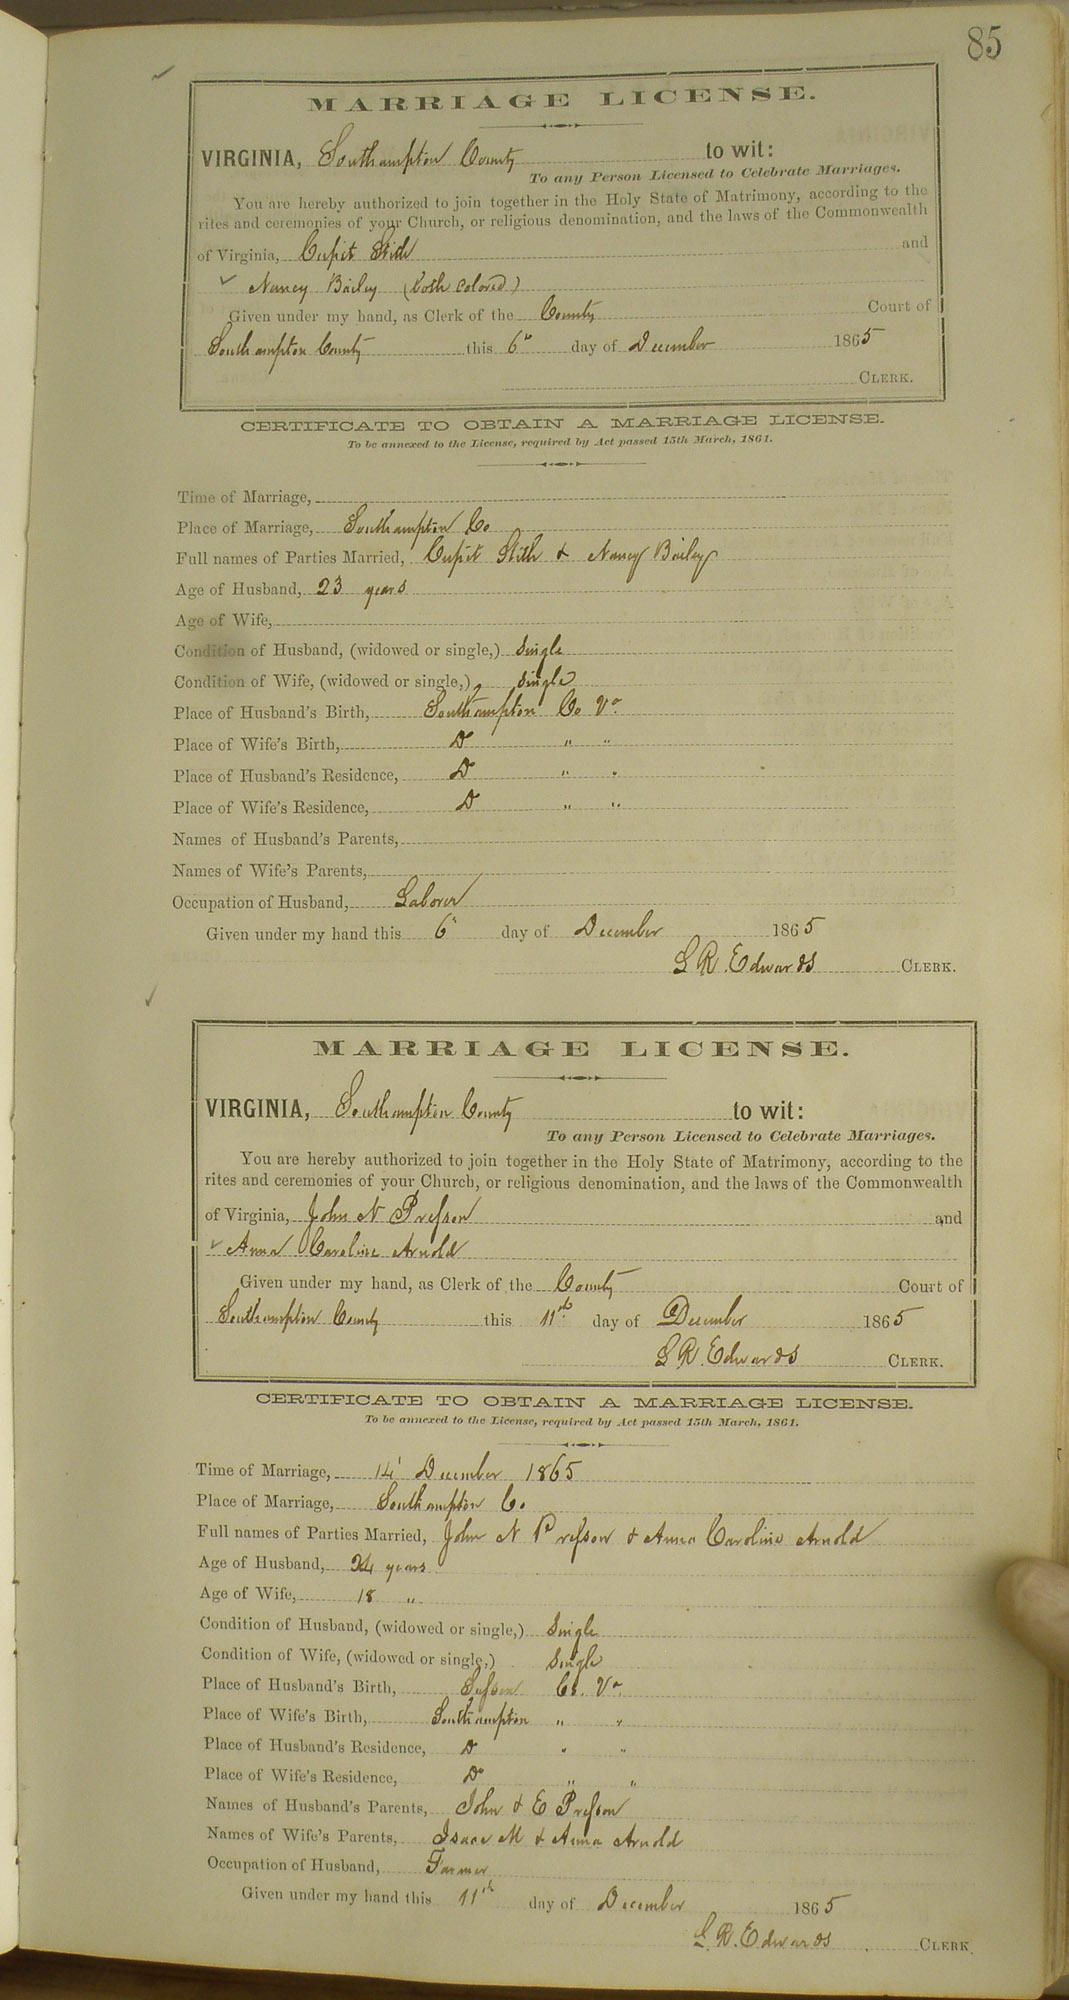 85
MARRIAGE LICENSE.
VIRGINIA, Southampton County to wit:
To any Person Licensed to Celebrate Marriages.
You are hereby authorized to join together in the Holy State of Matrimony, according to the
rites and ceremonies of your Church, or religious denomination, and the laws of the Commonwealth
of Virginia, Cupit Stith and
Nancy Bailey (both colored)
Given under my hand, as Clerk of the County Court of
Southampton County this 6th day of December 1865
CLERK.
CERTIFICATE TO OBTAIN A MARRIAGE LICENSE.
To be annexed to the License, required by Act passed 15th March, 1861.
Time of Marriage,
Place of Marriage, Southampton Co
Full names of Parties Married, Cupit Stith & Nancy Bailey
Age of Husband, 23 years
Age of Wife,
Condition of Husband, (widowed or single,) single
Condition of Wife, (widowed or single,) single
Place of Husband's Birth, Southampton Co Va.
Place of Wife's Birth, Do " "
Place of Husband's Residence, Do " "
Place of Wife's Residence, Do " "
Names of Husband's Parents,
Names of Wife's Parents,
Occupation of Husband, Laborer
Given under my hand this 6th day of December 1865
L R. Edwards CLERK.
MARRIAGE LICENSE.
VIRGINIA, Southampton County to wit:
To any Person Licensed to Celebrate Marriages.
You are hereby authorized to join together in the Holy State of Matrimony, according to the
rites and ceremonies of your Church, or religious denomination, and the laws of the Commonwealth
of Virginia, John N Presson and
Anna Caroline Arnold
Given under my hand, as Clerk of the County Court of
Southampton County this 11th day of December 1865
L R. Edwards CLERK.
CERTIFICATE TO OBTAIN A MARRIAGE LICENSE.
To be annexed to the License, required by Act passed 15th March, 1861.
Time of Marriage, 14' December 1865
Place of Marriage, Southampton Co.
Full names of Parties Married, John N Presson & Anna Caroline Arnold
Age of Husband, 24 years
Age of Wife, 18 "
Condition of Husband, (widowed or single,) Single
Condition of Wife, (widowed or single,) Single
Place of Husband's Birth, Sussex Co. Va.
Place of Wife's Birth, Southampton " "
Place of Husband's Residence, Do " "
Place of Wife's Residence, Do " "
Names of Husband's Parents, John & E Presson
Names of Wife's Parents, Isaac M & Anna Arnold
Occupation of Husband, Farmer
Given under my hand this 11th day of December 1865
L. R. Edwards CLERK